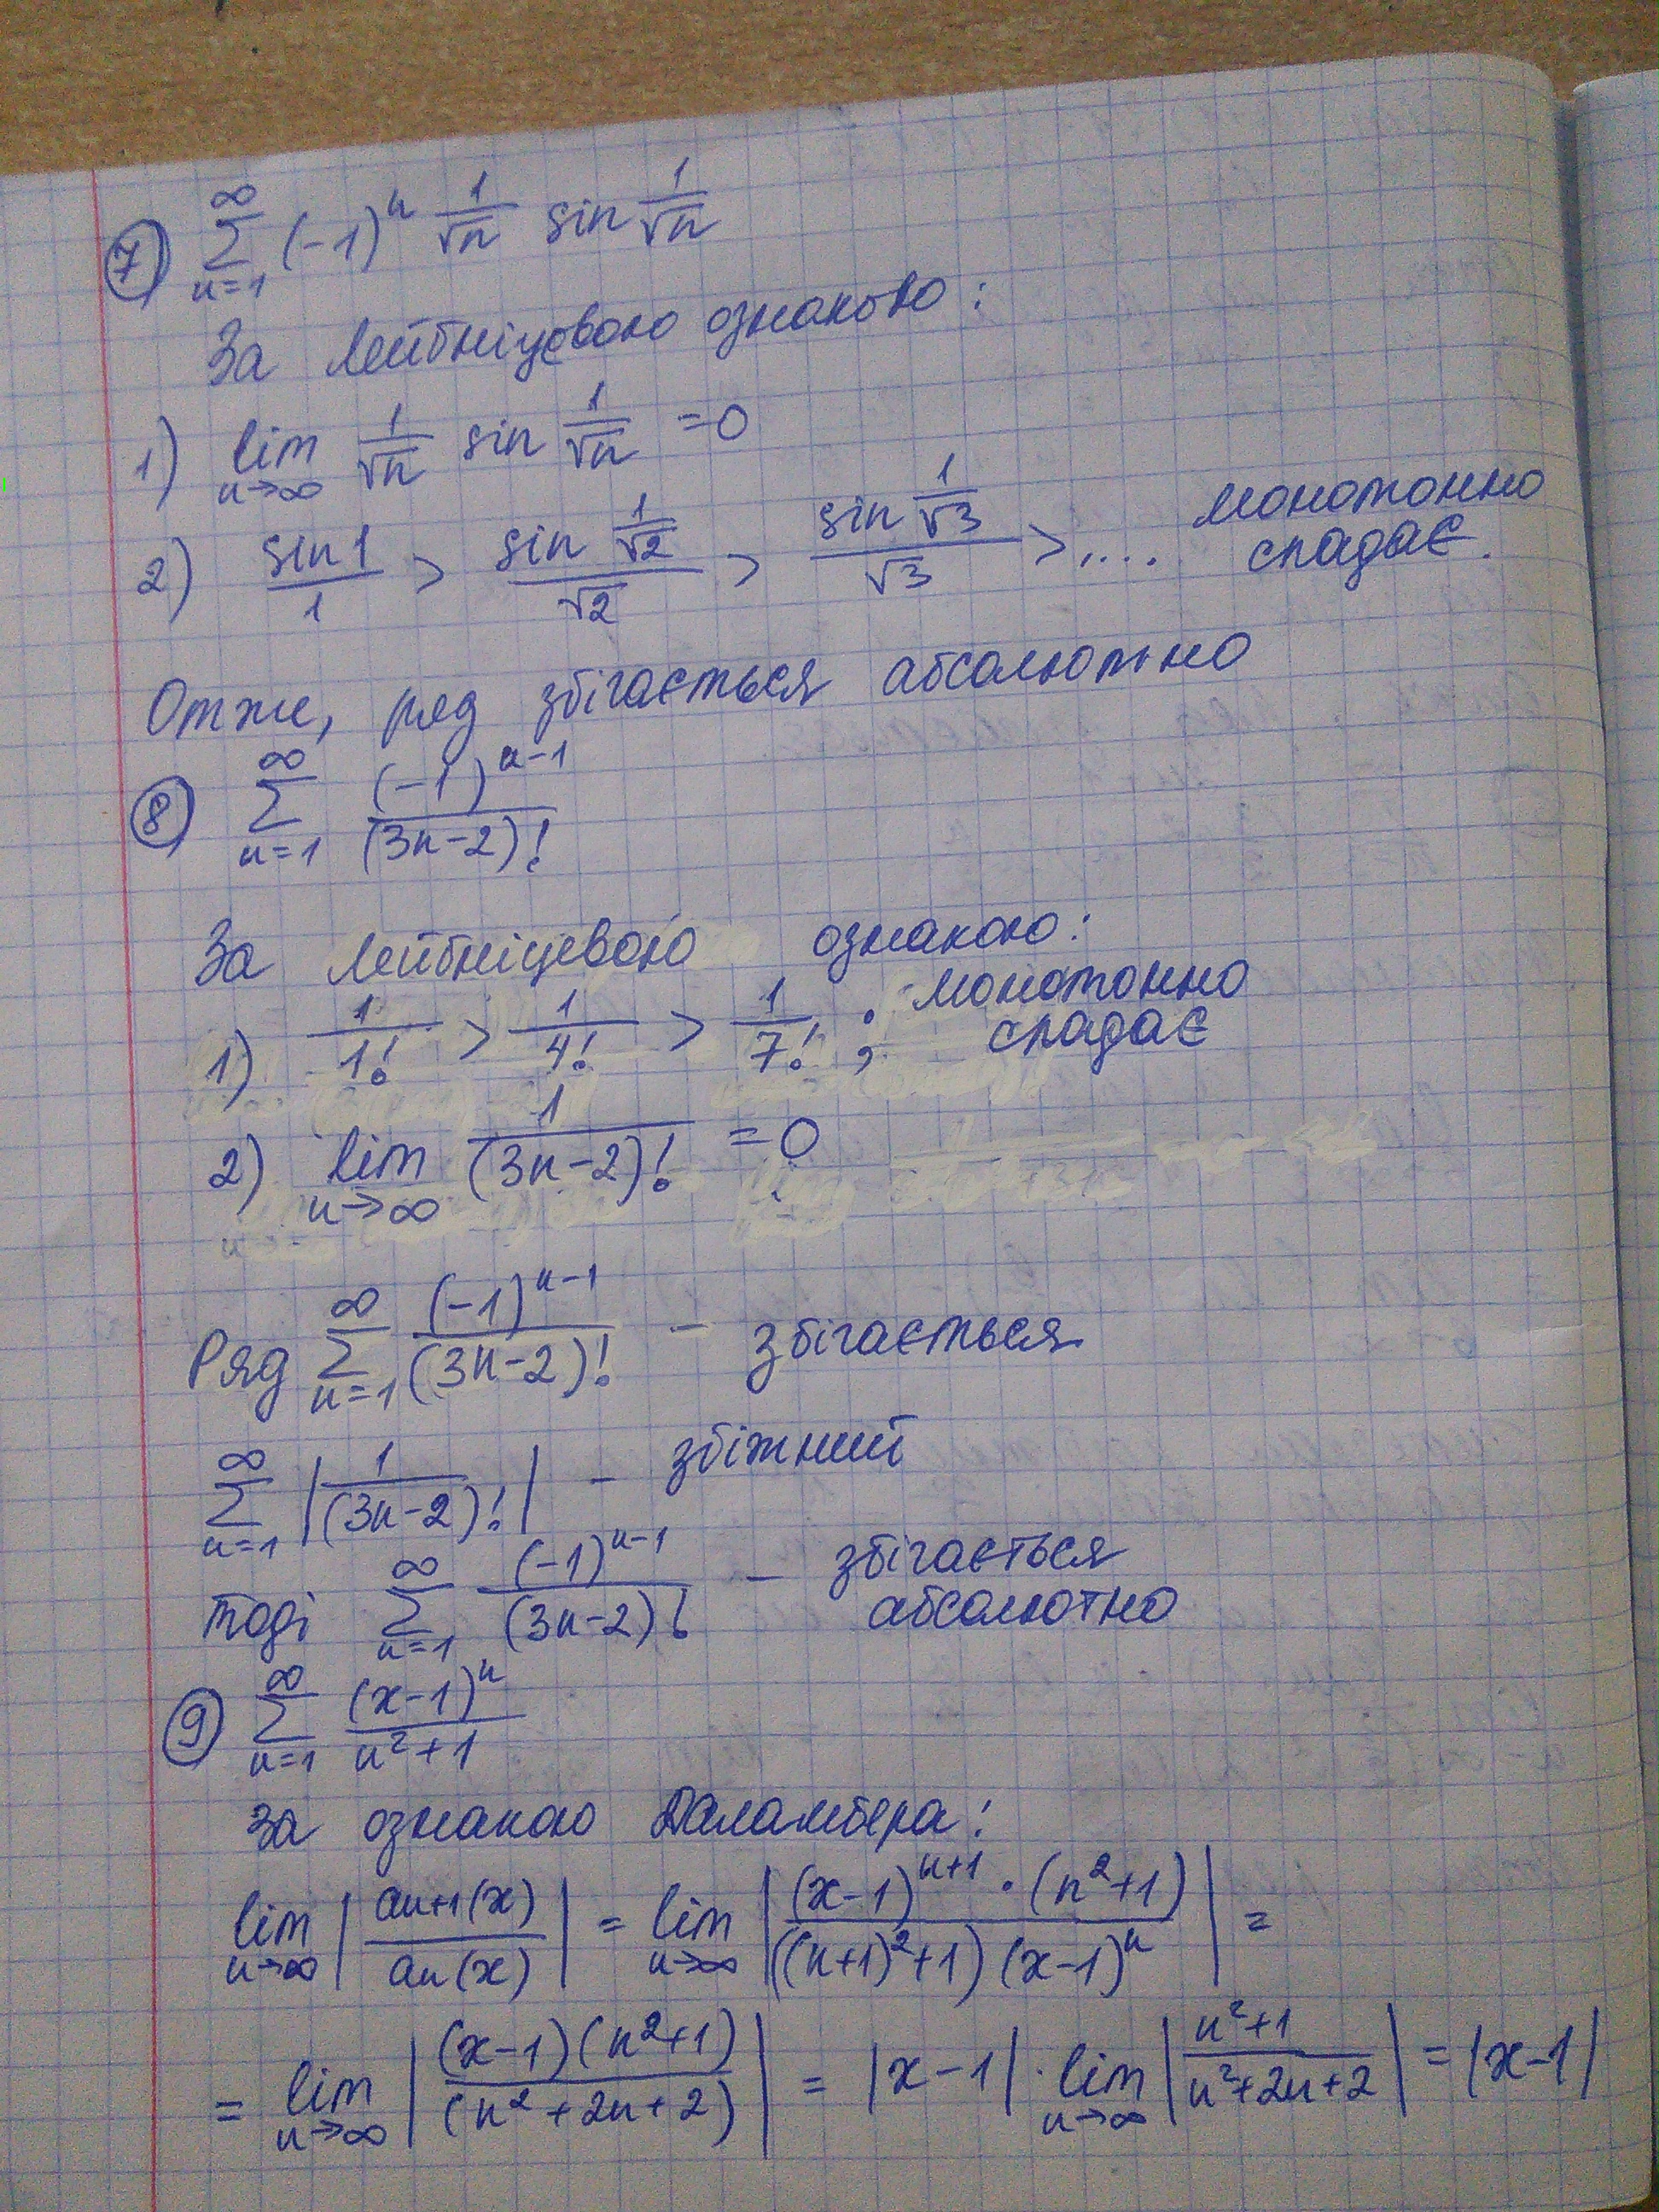 7) ∑_{n=1}^{∞} (-1)^n 1/√n sin 1/√n
За Лейбніцевою ознакою:
1) lim_{n→∞} 1/√n sin 1/√n = 0
2) sin1/1 > sin 1/√2 / √2 > sin 1/√3 / √3 >,.... монотонно спадає.
Отже, ряд збігається абсолютно
8) ∑_{n=1}^{∞} (-1)^{n-1}/(3n-2)!
За Лейбніцевою ознакою:
1) 1/1! > 1/4! > 1/7! ; монотонно спадає
2) lim_{n→∞} 1/(3n-2)! = 0
Ряд ∑_{n=1}^{∞} (-1)^{n-1}/(3n-2)! - збігається
∑_{n=1}^{∞} |1/(3n-2)!| - збіжний
тоді ∑_{n=1}^{∞} (-1)^{n-1}/(3n-2)! - збігається абсолютно
9) ∑_{n=1}^{∞} (x-1)^n/(n²+1)
За ознакою Даламбера:
lim_{n→∞} |a_{n+1}(x)/a_n(x)| = lim_{n→∞} |(x-1)^{n+1}·(n²+1)/((n+1)²+1)(x-1)^n| =
= lim_{n→∞} |(x-1)(n²+1)/(n²+2n+2)| = |x-1|·lim_{n→∞} |n²+1/n²+2n+2| = |x-1|